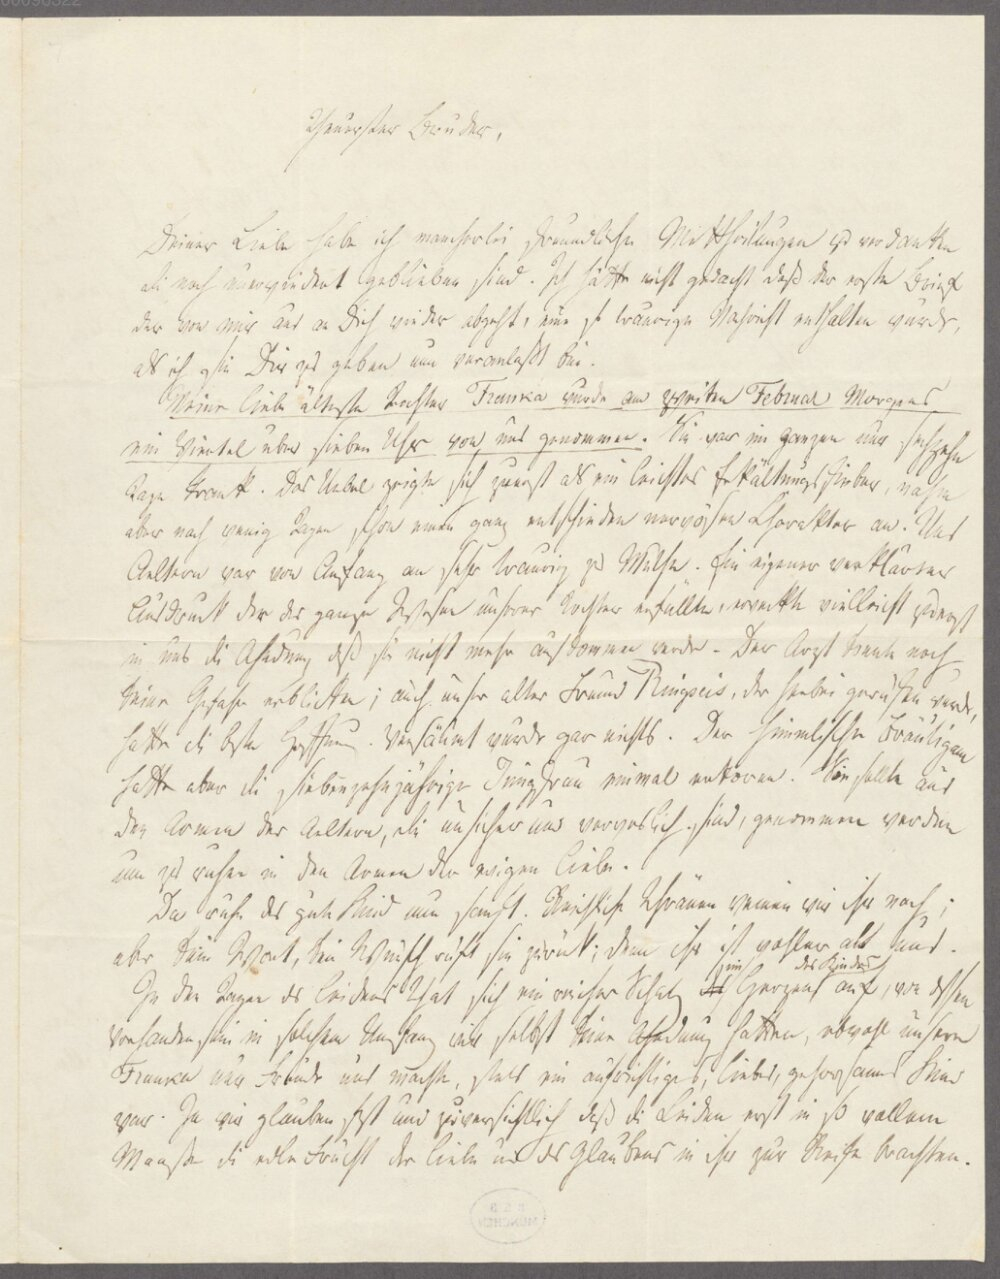 00096322
Theuerster Bruder,
Deiner Liebe habe ich mancherlei freundliche Mittheilungen zu verdanken
die noch unerwiedert geblieben sind. Ich hätte nicht gedacht daß der erste Brief
der von mir aus an Dich wieder abgeht, eine so traurige Nachricht enthalten würde,
als ich sie Dir zu geben nun veranlaßt bin.
Meine liebe älteste Tochter Franka wurde am zweiten Februar Morgens
ein Viertel über sieben Uhr von uns genommen. Sie war im ganzen nur sechzehn
Tage krank. Das Uebel zeigte sich zuerst als ein leichtes Erkältungsfieber, nahm
aber nach wenig Tagen schon einen ganz entschieden nervösen Charakter an. Uns
Aeltern war von Anfang an sehr traurig zu Muthe. Ein eigener verklärter
Ausdruck der das ganze Wesen unserer Tochter erfüllte, erweckte vielleicht zuerst
in uns die Ahndung daß sie nicht mehr aufkommen werde. Der Arzt konnte noch
keine Gefahr erblicken; auch unser alter Freund Ringseis, der herbei gerufen wurde,
hatte die beste Hoffnung. Versäumt wurde gar nichts. Der himmlische Bräutigam
hatte aber die siebenzehnjährige Jungfrau einmal erkoren. Sie sollte aus
den Armen der Aeltern, die unsicher und sind, genommen werden
um zu ruhen in den Armen der ewigen Liebe.
Da ruhe das gute Kind nun sanft. Reichliche Thränen weinen wir ihr nach;
aber kein Wort, kein Wunsch ruft sie zurück; denn ihr ist wohler als uns.
In den Tagen des Leidens that sich ein reicher Schatz im Herzen des Kindes auf, von dessen
Vorhandensein in solchem Umfang wir selbst keine Ahndung hatten, obwohl unsere
Franka nur Freude uns machte, stets ein aufrichtiges, liebes, gehorsames Kind
war. Ja wir glauben fest und zuversichtlich daß die Leiden erst in so vollem
Maaße die edle Frucht der Liebe und des Glaubens in ihr zur Reife brachten.